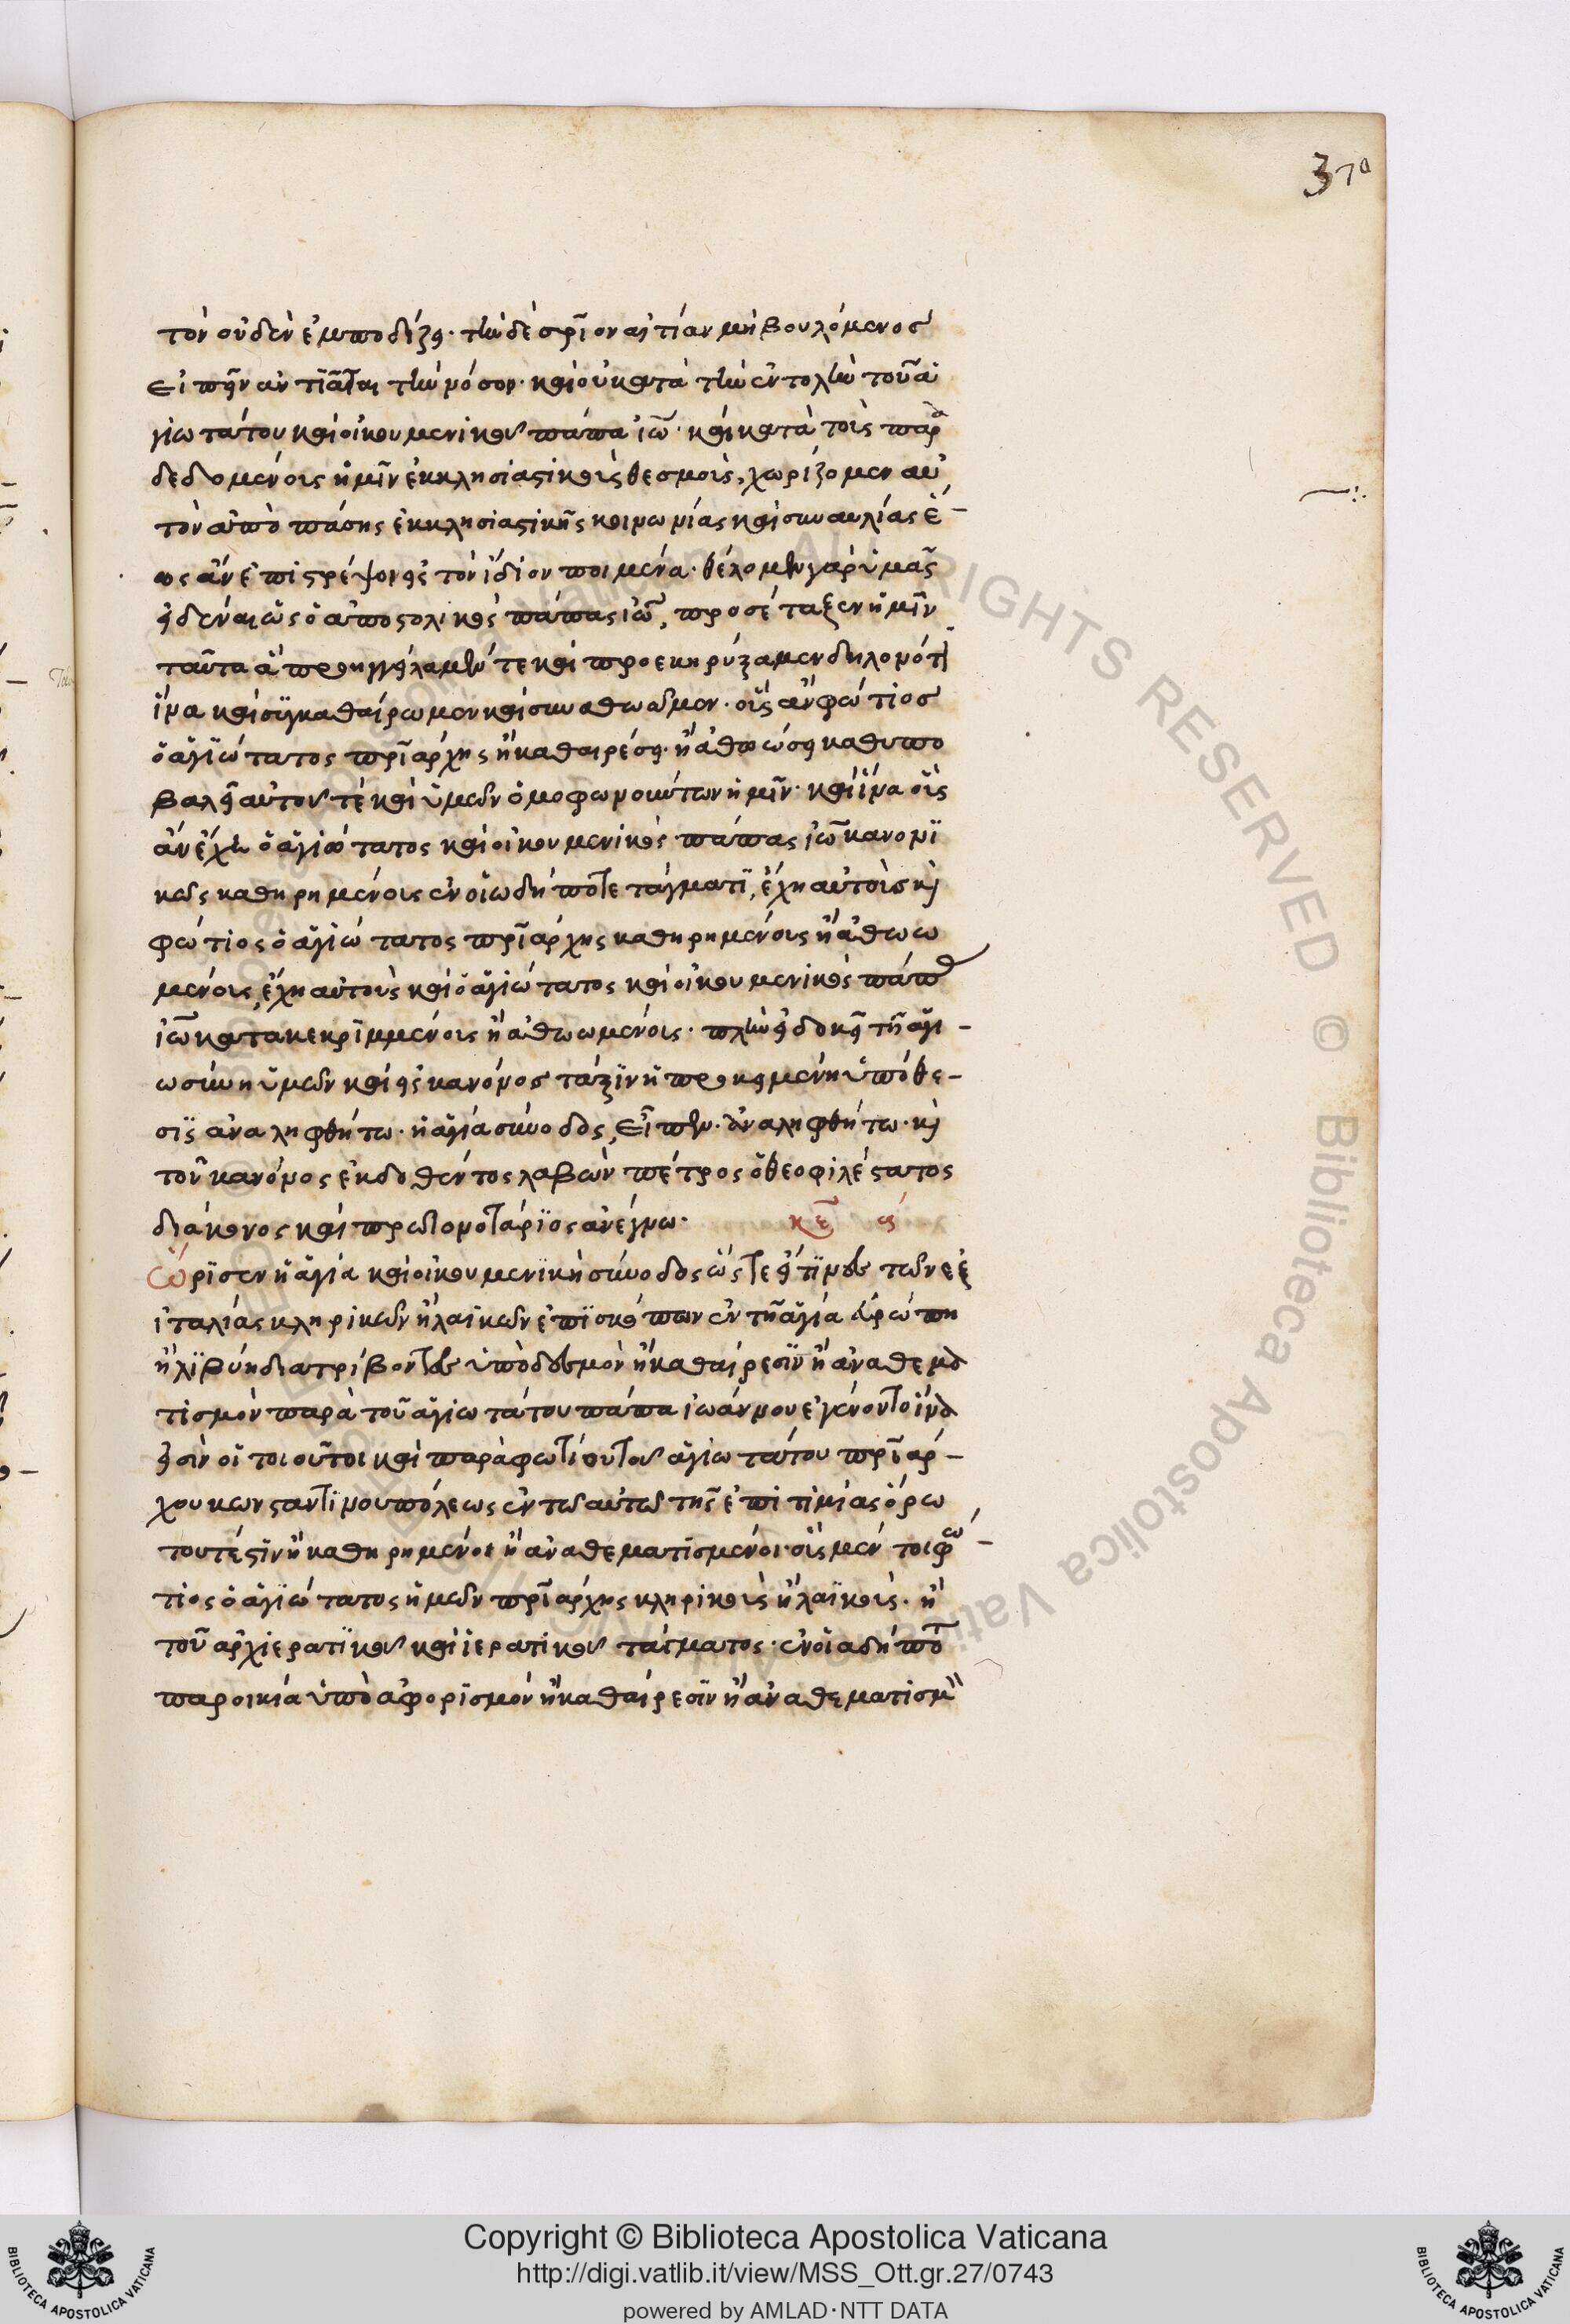 370
τὸν οὐδὲν ἐμποδίζει· τὴν δὲ σπρῖον αἰτίαν μὴ βουλόμενος
εἰπεῖν αἰτιᾶται τὴν νόσον· καὶ οὖν κατὰ τὴν ἐντολὴν τοῦ ἁ
γιωτάτου καὶ οἰκουμενικοῦ πάπα ἰω̅· καὶ κατὰ τοῖς παρα
δεδομένοις ἡμῖν ἐκκλησιαστικοῖς θεσμοῖς, χωρίζομεν αὐ
τὸν ἀπὸ πάσης ἐκκλησιαστικῆς κοινωνίας καὶ συναυλίας ἕ-
ως ἂν ἐπιστρέψοι εἰς τὸν ἴδιον ποιμένα· θέλομεν γὰρ ὑμᾶς
εἰδέναι ὡς ὁ ἀποστολικὸς πάπας ἰω̅, προσέταξεν ἡμῖν
ταῦτα ἃ προηγγείλαμέν τε καὶ προεκηρύξαμεν δηλονότι
ἵνα καὶ συγκαθαίρωμεν καὶ συναθωῶμεν· οἷς ἂν φώτιος
ὁ ἁγιώτατος πρ̅ιάρχης ἢ καθαιρέσει· ἢ ἀθωώσει καθυπο
βαλεῖ αὐτοῦ τὲ καὶ ὑμῶν ὁμοφωνούντων ἡμῖν· καὶ ἵνα οἷς
ἂν ἔχη ὁ ἁγιώτατος καὶ οἰκουμενικὸς πάπας ἰω̅ κανονι
κῶς καθηρημένοις ἐν οἵω δήποτε τάγματι, ἔχη αὐτοὶς κ̀
φώτιος ὁ ἁγιώτατος πρ̅ιάρχης καθηρημένοις ἢ ἀθωω
μένοις, ἔχη αὐτοὺς καὶ ὁ ἁγιώτατος καὶ οἰκουμενικὸς πάπας
ἰω̅ κατακεκριμμένοις ἢ ἀθωωμένοις· πλὴν εἰ δοκεῖ τῆ ἁγι-
ωσύνη ὑμῶν καὶ εἰς κανόνος τάξιν ἡ προκειμένη ὑπόθε-
σις ἀναληφθήτω· ἡ ἁγία σύνοδος, εἶπεν· ἀναληφθήτω· κ̀
τοῦ κανόνος ἐκδοθέντος λαβὼν πέτρος ὁ θεοφιλέστατος
διάκονος καὶ πρωτονοτάριος ἀνέγνω· κε̅ α
Ὥρισεν ἡ ἁγία καὶ οἰκουμενικὴ σύνοδος ὥστε εἴ τινες τῶν ἐξ
ἰταλίας κληρικῶν ἢ λαϊκῶν ἢ ἐπισκόπων ἐν τῆ ἁγία εὐρώπη
ἢ λιβύη διατρίβοντες ὑπὸ δεσμὸν ἢ καθαίρεσιν ἢ ἀναθεμα
τισμὸν παρὰ τοῦ ἁγιωτάτου πάπα ἰωάννου ἐγένοντο ἵνα
εἰσὶν οἱ τοιοῦτοι καὶ παρὰ φωτίου τοῦ ἁγιωτάτου πρ̅ιάρ-
χου κωνσταντινουπόλεως ἐν τῶ αὐτῶ τῆς ἐπιτιμίας ὅρω
τουτέστιν ἢ καθηρημένοι ἢ ἀναθεματισμένοι· οἷς μέν τοι φώ-
τιος ὁ ἁγιώτατος ἡμῶν πρ̅ιάρχης κληρικοὶς ἢ λαϊκοὶς· ἢ
τοῦ ἀρχιερατικοῦ καὶ ἱερατικοῦ τάγματος· ἐν οἵα δήποτε
παροικία ὑπὸ ἀφορισμὸν ἢ καθαίρεσιν ἢ ἀναθεματισμὸν
ALL RIGHTS RESERVED © Biblioteca Apostolica Vaticana
Copyright © Biblioteca Apostolica Vaticana
http://digi.vatlib.it/view/MSS_Ott.gr.27/0743
powered by AMLAD·NTT DATA
BIBLIOTECA APOSTOLICA VATICANA
BIBLIOTECA APOSTOLICA VATICANA